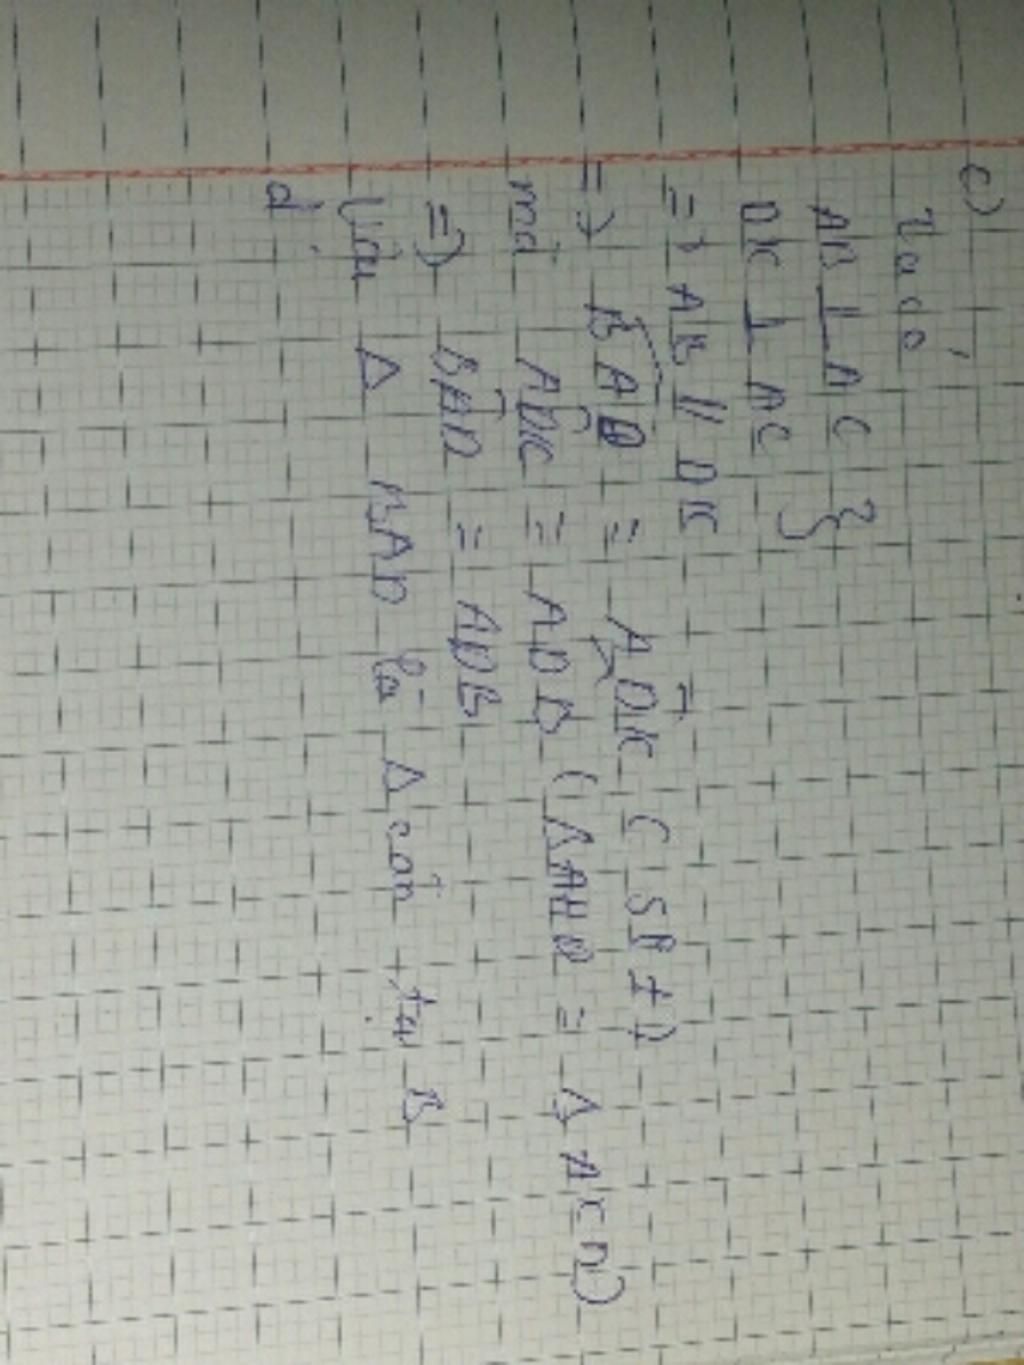 c)
Ta có
AB ⊥ AC }
DK ⊥ AC
=> AB // DK
=> BAD = ADK (SLT)
mà ADK = ADB (ΔAHD = Δ AKD)
=> BAD = ADB
Vậy Δ BAD là Δ cân tại B
d.